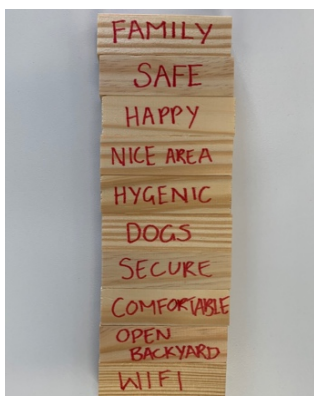 FAMILY
SAFE
HAPPY
NICE AREA
HYGENIC
DOGS
SECURE
COMFORTABLE
OPEN
BACKYARD
WIFI